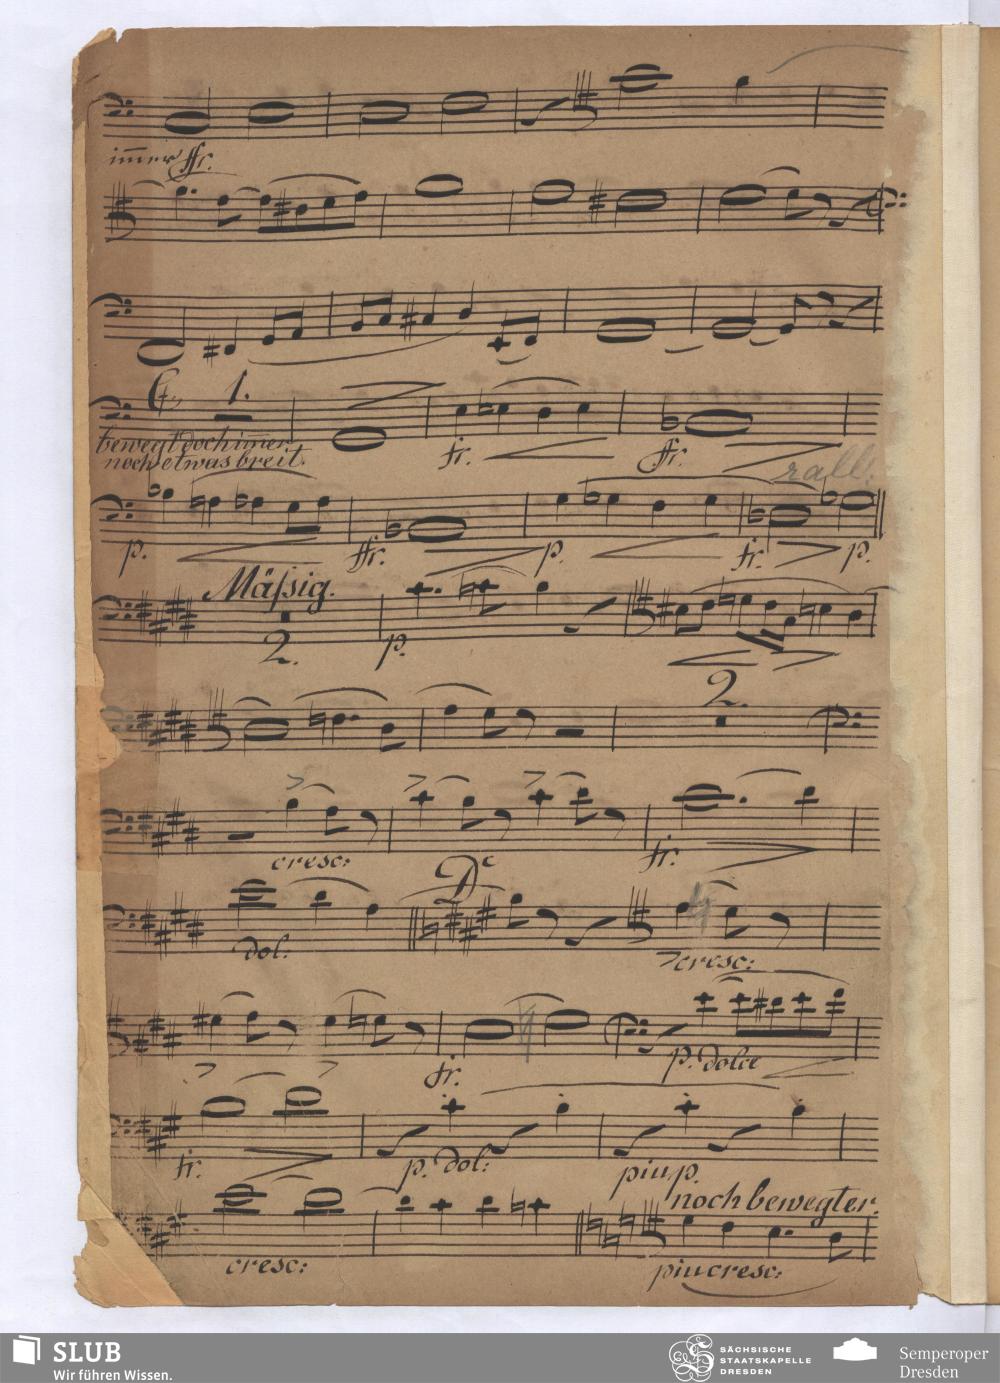 immer ff.
C 1.
bewegt doch immer
noch etwas breit.
fr. ffr.
rall:
p. ffr. p. fr. p.
Mäßig.
2. p.
2.
cresc: fr.
D
dol. cresc:
fr. p. dolce
fr. p. dol: piu p.
noch bewegter.
cresc: piu cresc:
SLUB
Wir führen Wissen.
SÄCHSISCHE
STAATSKAPELLE
DRESDEN
Semperoper
Dresden